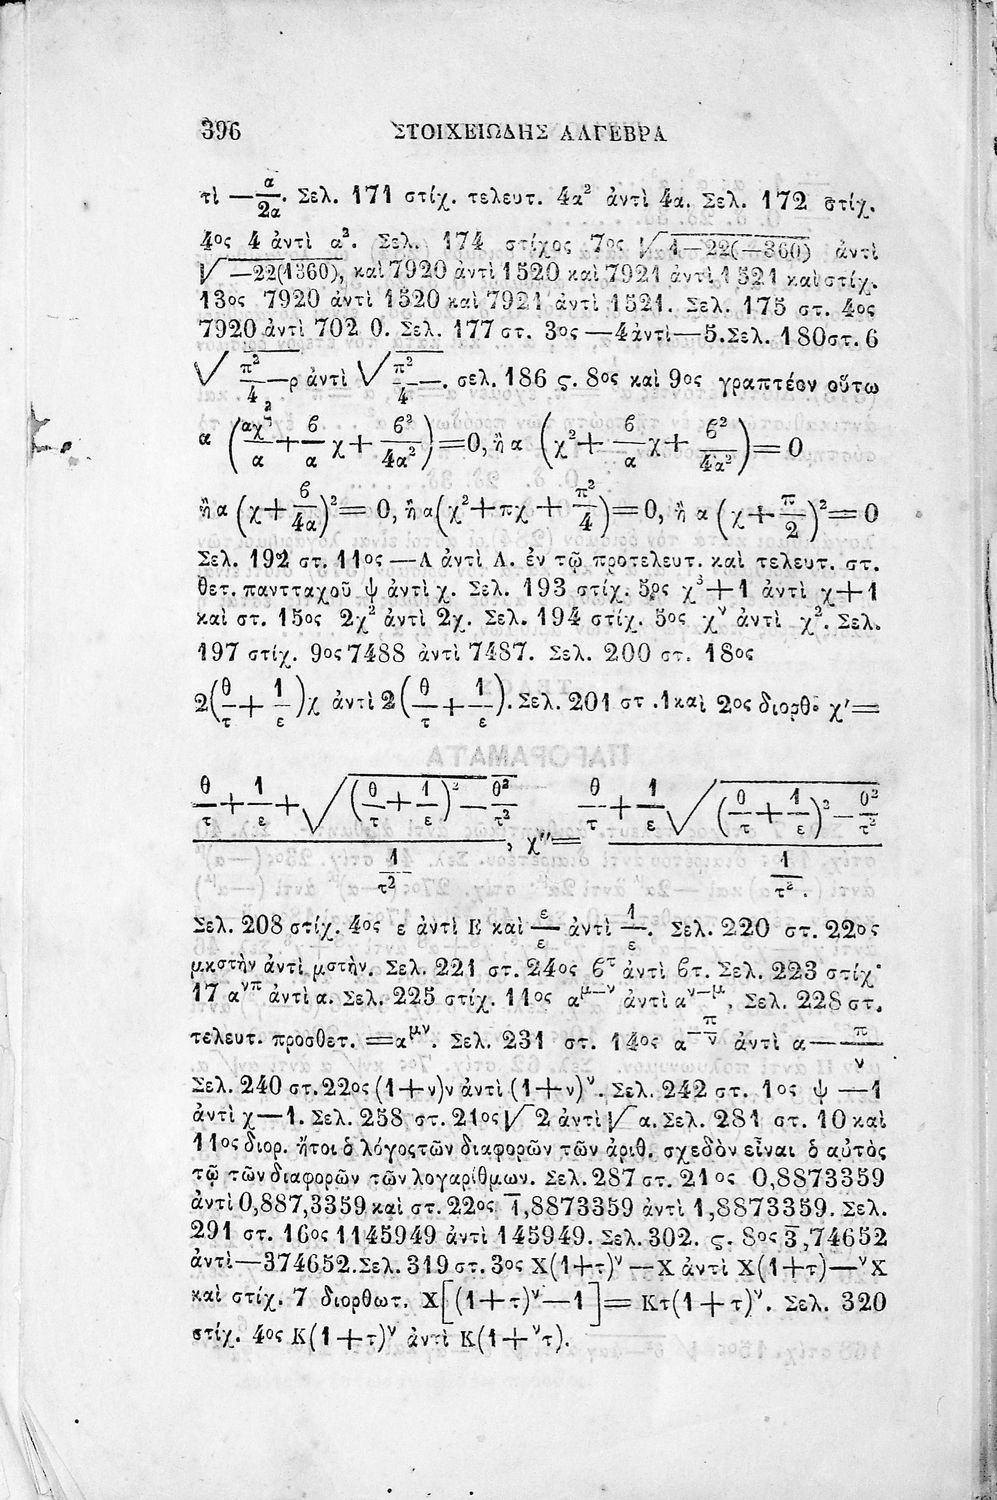 396 ΣΤΟΙΧΕΙΩΔΗΣ ΑΛΓΕΒΡΑ
τὶ —α/2α. Σελ. 171 στίχ. τελευτ. 4α² ἀντὶ 4α. Σελ. 172 στίχ.
4ος 4 ἀντὶ α². Σελ. 174 στίχος 7ος √4—22(—360) ἀντὶ
√—22(1360), καὶ 7920 ἀντὶ 1520 καὶ 7921 ἀντὶ 1521 καὶ στίχ.
13ος 7920 ἀντὶ 1520 καὶ 7921 ἀντὶ 1521. Σελ. 175 στ. 4ος
7920 ἀντὶ 702 0. Σελ. 177 στ. 3ος —4 ἀντὶ —5. Σελ. 180 στ. 6
√π²/4—ρ ἀντὶ √π²/4—. σελ. 186 ς. 8ος καὶ 9ος γραπτέον οὕτω
α (αχ²/α + β/α χ + β²/4α²)=0, ἢ α (χ²+ β/α χ+ β²/4α²)=0
ἢ α (χ+β/4α)²=0, ἢ α(χ²+πχ+π²/4)=0, ἢ α (χ+π/2)²=0
Σελ. 192 στ. 11ος —Λ ἀντὶ Λ. ἐν τῷ προτελευτ. καὶ τελευτ. στ.
θετ. παντταχοῦ ψ ἀντὶ χ. Σελ. 193 στίχ. 5ος χ³+1 ἀντὶ χ+1
καὶ στ. 15ος 2χ² ἀντὶ 2χ. Σελ. 194 στίχ. 5ος χᵛ ἀντὶ χ². Σελ.
197 στίχ. 9ος 7488 ἀντὶ 7487. Σελ. 200 στ. 18ος
2(θ/τ + 1/ε)χ ἀντὶ 2(θ/τ + 1/ε). Σελ. 201 στ. 1 καὶ 2ος διορθ. χ′=
(θ/τ+1/ε+√((θ/τ+1/ε)²—θ²/τ²))/(1/τ²), χ″=(θ/τ+1/ε√((θ/τ+1/ε)²—θ²/τ²))/(1/τ²).
Σελ. 208 στίχ. 4ος ε ἀντὶ Ε καὶ ε/ε ἀντὶ 1/ε. Σελ. 220 στ. 22ος
μκστὴν ἀντὶ μστὴν. Σελ. 221 στ. 24ος βᵗ ἀντὶ βτ. Σελ. 223 στίχ.
17 αᵛᵖ ἀντὶ α. Σελ. 225 στίχ. 11ος α^μ—ν ἀντὶ α^ν—μ, Σελ. 228 στ.
τελευτ. προσθετ. =α^μν. Σελ. 231 στ. 14ος α^—π/ν ἀντὶ α—π/ν
Σελ. 240 στ. 22ος (1+ν)ν ἀντὶ (1+ν)ᵛ. Σελ. 242 στ. 1ος ψ —1
ἀντὶ χ—1. Σελ. 258 στ. 21ος √2 ἀντὶ √α. Σελ. 281 στ. 10 καὶ
11ος διορ. ἤτοι ὁ λόγος τῶν διαφορῶν τῶν ἀριθ. σχεδὸν εἶναι ὁ αὐτὸς
τῷ τῶν διαφορῶν τῶν λογαρίθμων. Σελ. 287 στ. 21ος 0,8873359
ἀντὶ 0,887,3359 καὶ στ. 22ος 1̅,8873359 ἀντὶ 1,8873359. Σελ.
291 στ. 16ος 1145949 ἀντὶ 145949. Σελ. 302. ς. 8ος 3̅,74652
ἀντὶ—374652. Σελ. 319 στ. 3ος Χ(1+τ)ᵛ —Χ ἀντὶ Χ(1+τ)—ᵛΧ
καὶ στίχ. 7 διορθωτ. Χ[(1+τ)ᵛ—1]= Κτ(1+τ)ᵛ. Σελ. 320
στίχ. 4ος Κ(1+τ)ᵛ ἀντὶ Κ(1+ᵛτ).